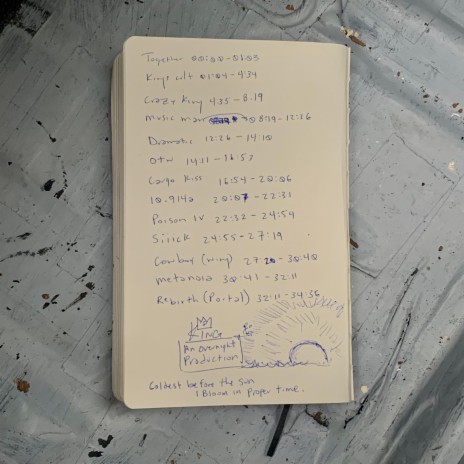 Together 00:00-01:03
01:04-4:34
Crazy King 4:35-8:19
Music man 8:19-12:26
Dramatic 12:26-14:10
OTW 14:11-16:53
Cargo Kiss 16:54-20:06
20:07-22:31
Poison IV 22:32-24:54
24:55-27:19
Cowboy 27:20-30:40
metanoia 30:41-32:11
Rebirth (Portal) 32:11-34:36
KING
An overnight
Production
Coldest before the sun
I Bloom in Proper time.